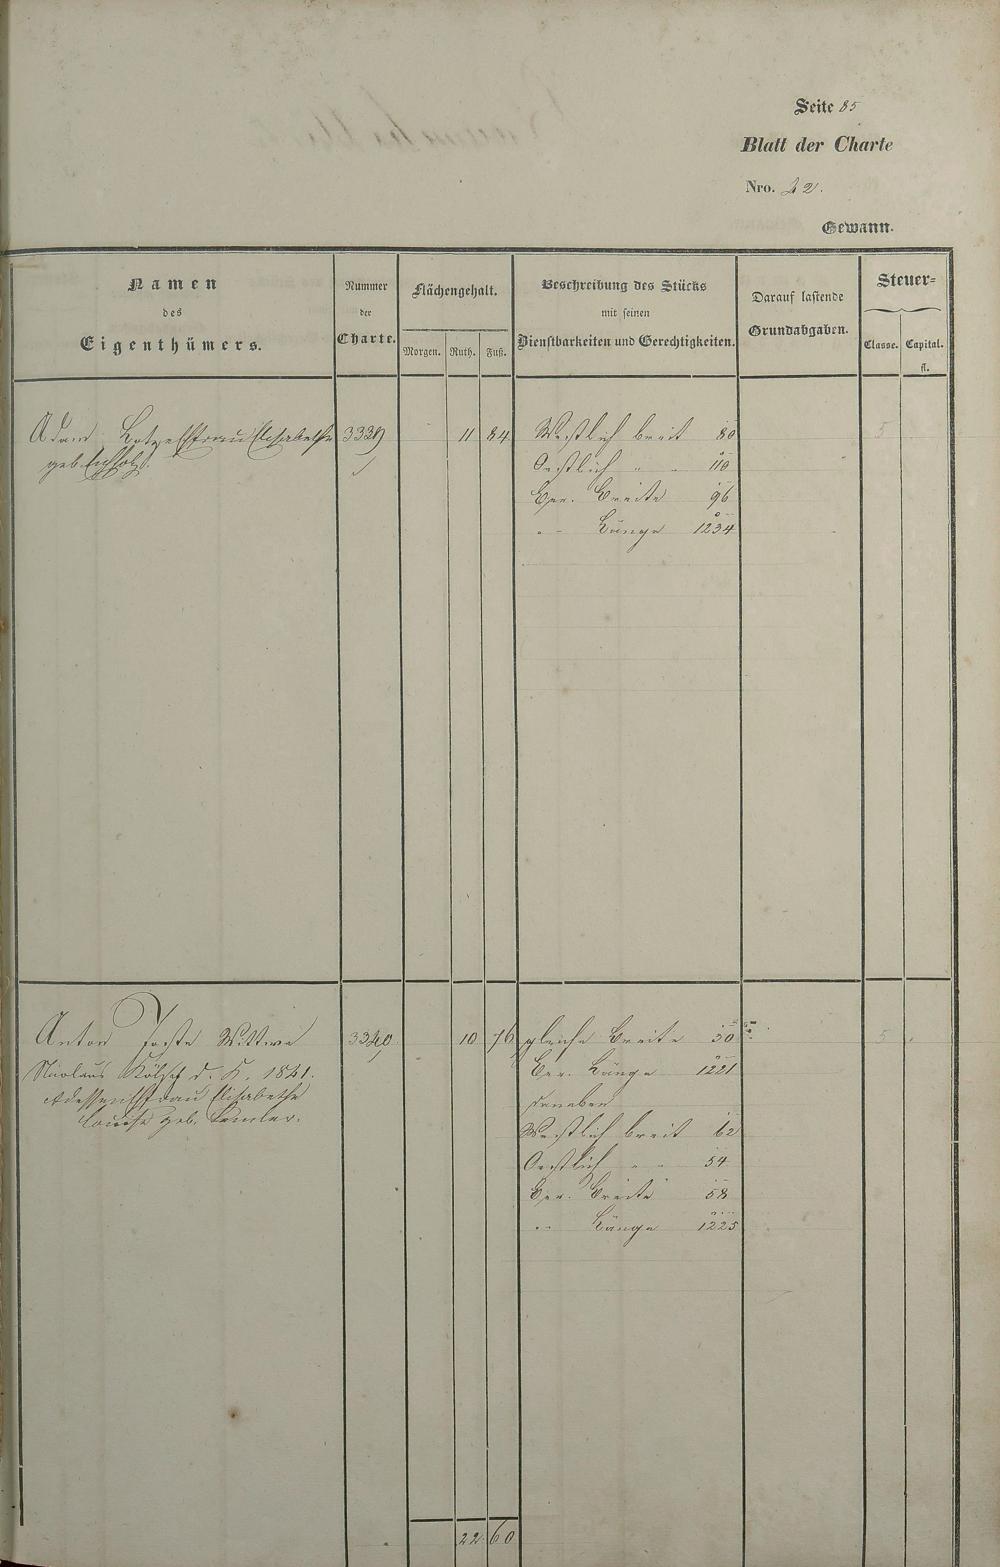 Seite 85
Blatt der Charte
Nro. 22.
Gewann.
Namen
des
Eigenthümers.
Nummer
der
Charte.
Flächengehalt.
Morgen. Ruth. Fuß.
Beschreibung des Stücks
mit seinen
Dienstbarkeiten und Gerechtigkeiten.
Darauf lastende
Grundabgaben.
Steuer=
Classe. Capital.
fl.
Adam Elisabetha 3339 11 84 Westlich breit 80 5
geb. Oestlich " " 110
Ger. Breite 96
" Länge 1234
Anton Wittwe 3340 10 76 gleiche Breite 50 5
Nicolaus Kölsch d. K. 1841. Ger. Länge 1221
dessen Ehefrau Elisabetha daneben
Louise geb. Westlich breit 62
Oestlich " " 54
Ger. Breite 58
" Länge 1225
22 60